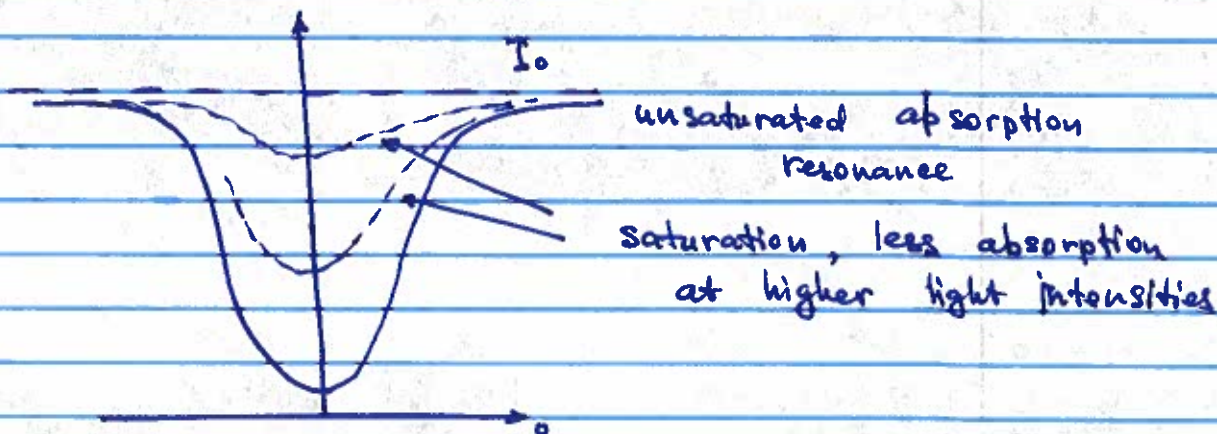 I₀
unsaturated absorption
resonance
saturation, less absorption
at higher light intensities